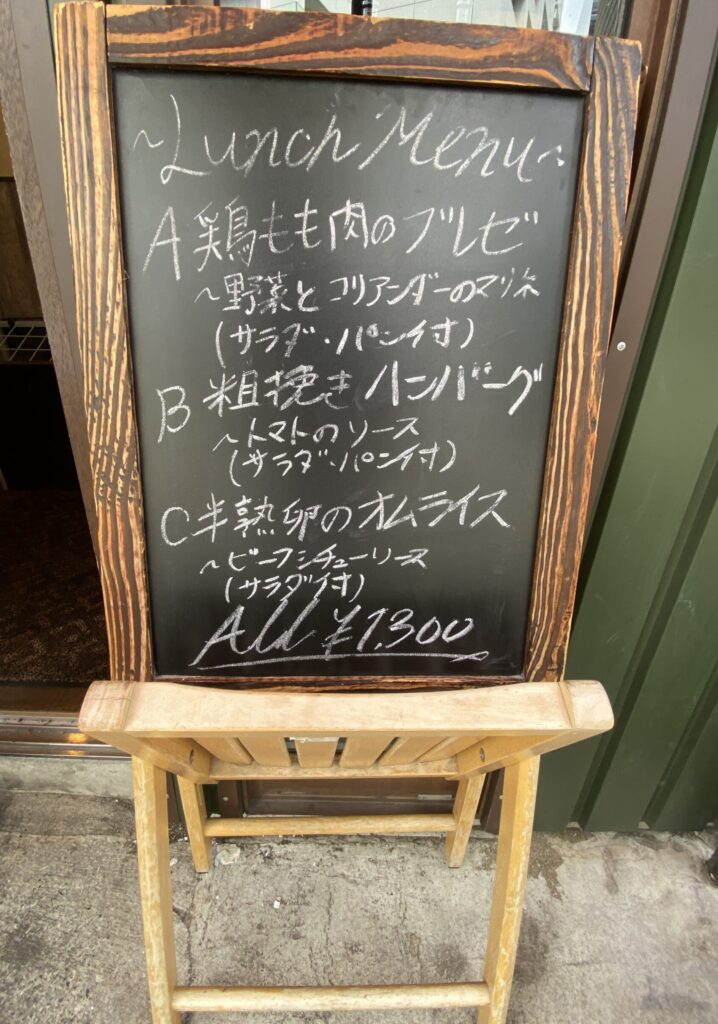 ~Lunch Menu~
A 鶏もも肉のブレゼ
~野菜とコリアンダーのマリネ
(サラダ・パン付)
B 粗挽きハンバーグ
~トマトのソース
(サラダ・パン付)
C 半熟卵のオムライス
~ビーフシチューソース
(サラダ付)
All ¥1,300